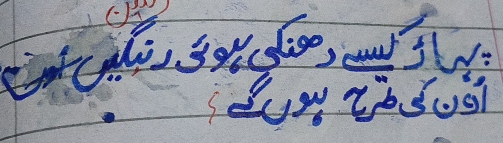 پہاڑ کیسے دھنکی ہوئی رنگین
اُون کی طرح ہوں گے ؟